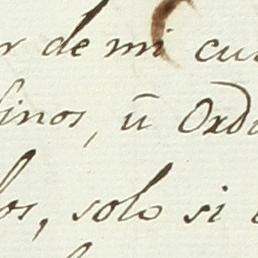 r de mi cu
sinos, ũ Ordi
los, solo si